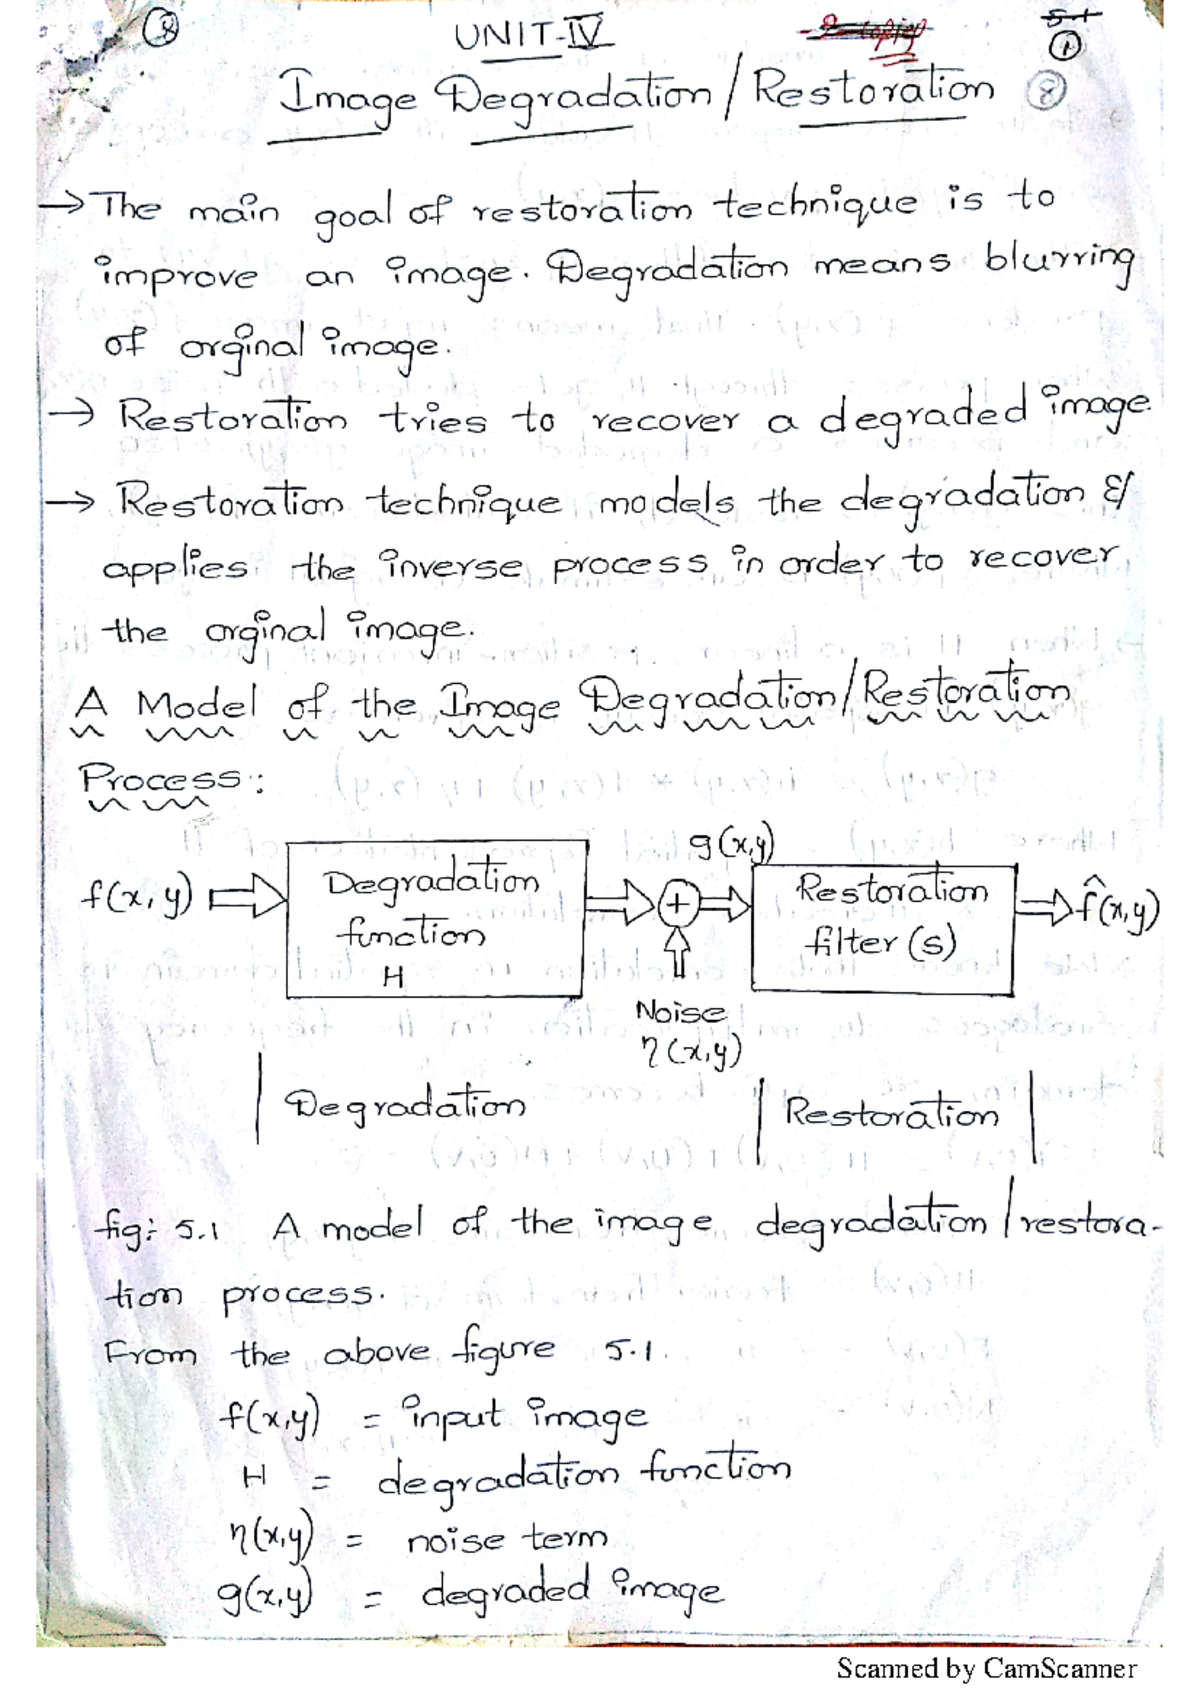 8
UNIT-IV
5.1
1
Image Degradation/Restoration 8
→ The main goal of restoration technique is to
improve an image. Degradation means blurring
of orginal image.
→ Restoration tries to recover a degraded image.
→ Restoration technique models the degradation &
applies the inverse process in order to recover
the orginal image.
A Model of the Image Degradation/Restoration
Process:
g(x,y)
f(x,y) Degradation function H + Restoration filter(s) f̂(x,y)
Noise
η(x,y)
Degradation Restoration
fig: 5.1 A model of the image degradation/restora-
tion process.
From the above figure 5.1.
f(x,y) = input image
H = degradation function
η(x,y) = noise term
g(x,y) = degraded image
Scanned by CamScanner